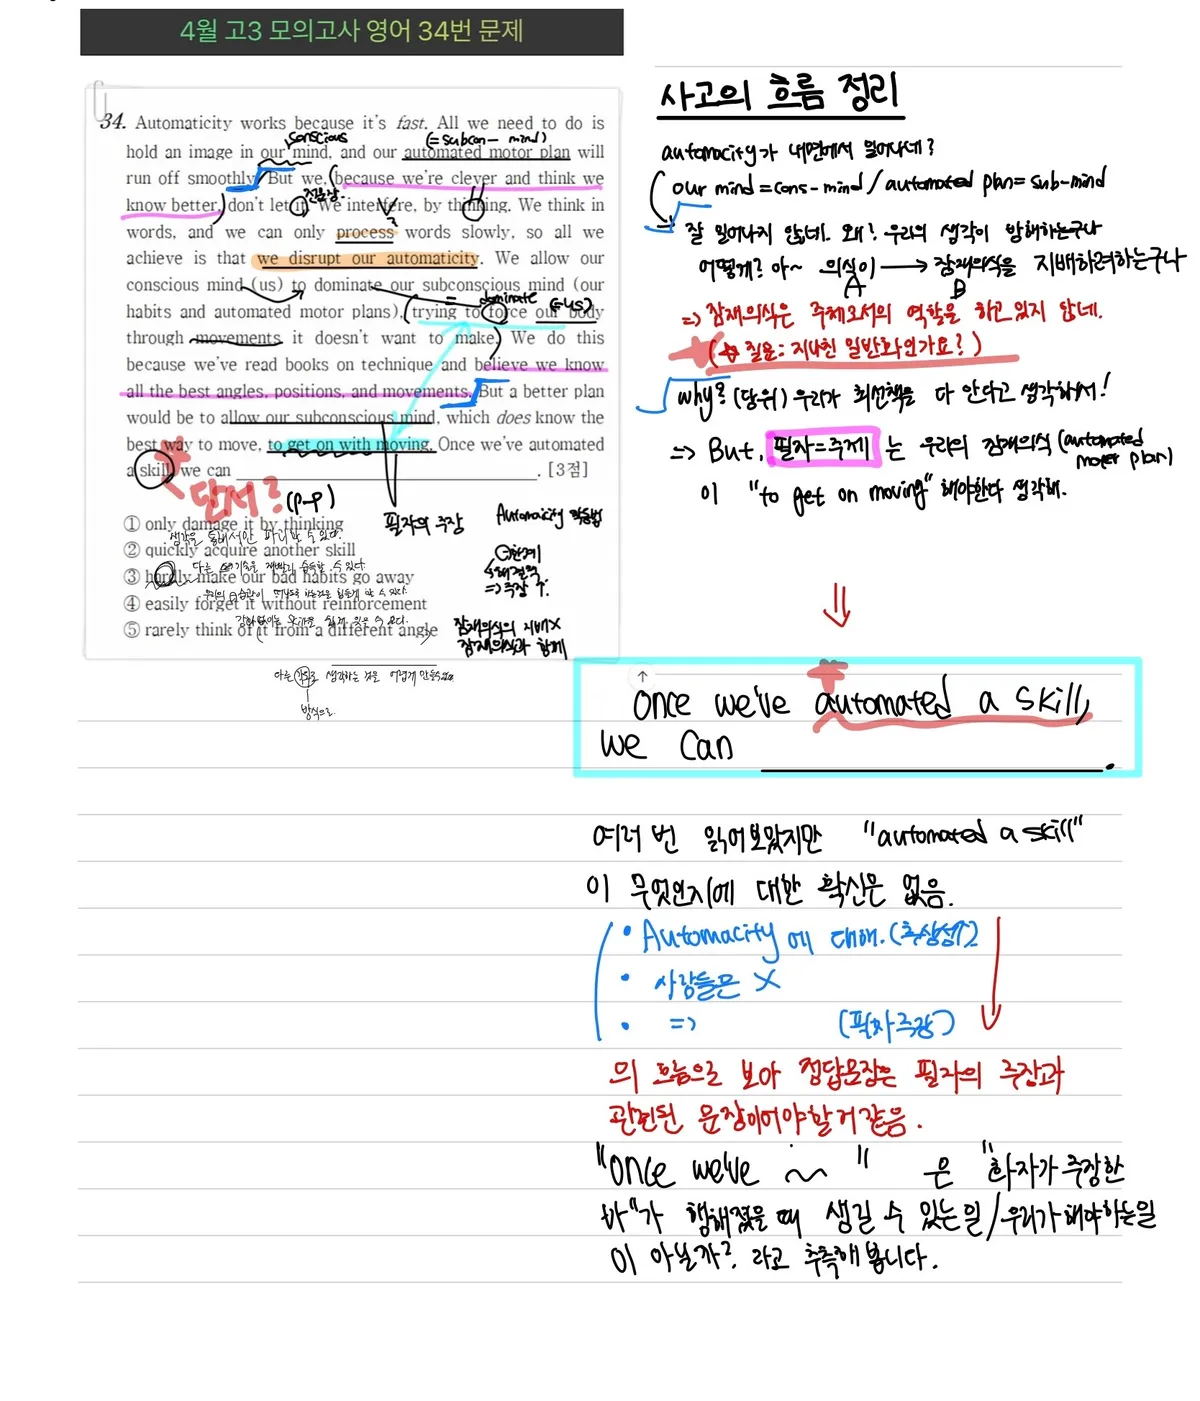 4월 고3 모의고사 영어 34번 문제
34. Automaticity works because it's fast. All we need to do is
conscious (=subcon- mind)
hold an image in our mind, and our automated motor plan will
run off smoothly. But we, because we're clever and think we
know better, don't let it. We interfere, by thinking. We think in
words, and we can only process words slowly, so all we
achieve is that we disrupt our automaticity. We allow our
conscious mind (us) to dominate our subconscious mind (our
= dominate (=us)
habits and automated motor plans), trying to force our body
through movements it doesn't want to make. We do this
because we've read books on technique and believe we know
all the best angles, positions, and movements. But a better plan
would be to allow our subconscious mind, which does know the
best way to move, to get on with moving. Once we've automated
a skill, we can ____________. [3점]
단서? (p-p)
필자의 주장
① only damage it by thinking
생각을 통해서만 파괴할 수 있다.
② quickly acquire another skill
③ hardly make our bad habits go away
④ easily forget it without reinforcement
⑤ rarely think of it from a different angle
방식으로.
한계
해결책
=> 주장 ↑.
잠재의식의 지배 X
잠재의식과 함께
사고의 흐름 정리
automocity가 내면에서 일어나네?
our mind = cons-mind / automated plan = sub-mind
잘 일어나지 않네. 왜? 우리의 생각이 방해하는구나
어떻게? 아~ 의식이 → 잠재의식을 지배하려하는구나
A B
=> 잠재의식은 주체로서의 역할을 하고 있지 않네.
(☆ 질문: 지나친 일반화인가요?)
why? (당위) 우리가 최선책을 다 안다고 생각해서!
=> But, 필자=주께 는 우리의 잠재의식 (automated
moter plan)
이 "to get on moving" 해야한다 생각해.
⇓
Once we've automated a skill,
we can ____________.
여러 번 읽어보았지만 "automated a skill"
이 무엇인지에 대한 확신은 없음.
• Automacity에 대해. (추상성↑)
• 사람들은 X
• => (필자주장)
의 흐름으로 보아 정답문장은 필자의 주장과
관련된 문장이어야할거같음.
"Once we've ~" 은 "화자가 주장한
바"가 행해졌을 때 생길 수 있는일/우리가해야하는일
이 아닐까? 라고 추측해 봅니다.